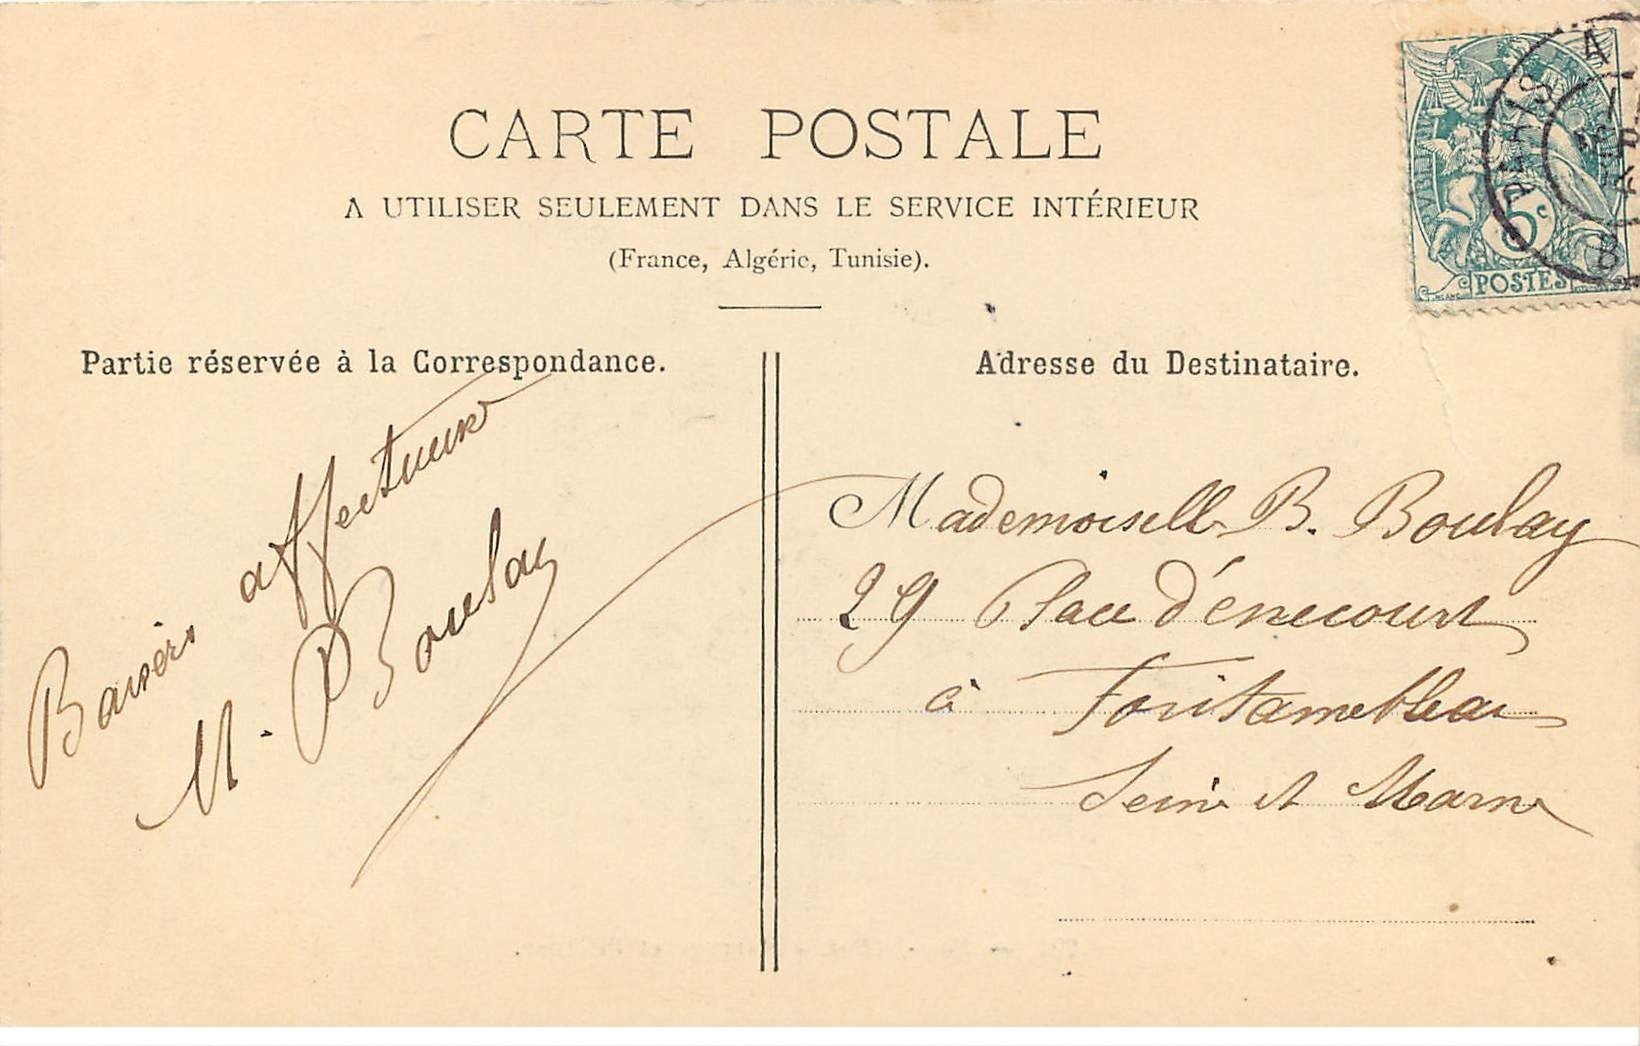 CARTE POSTALE
A UTILISER SEULEMENT DANS LE SERVICE INTÉRIEUR
(France, Algérie, Tunisie).
Partie réservée à la Correspondance.
Baisers affectueux
M. Boulay
Adresse du Destinataire.
Mademoiselle B. Boulay
29 Place d'énecourt
à Fontainebleau
Seine et Marne
PARIS
5c
POSTES